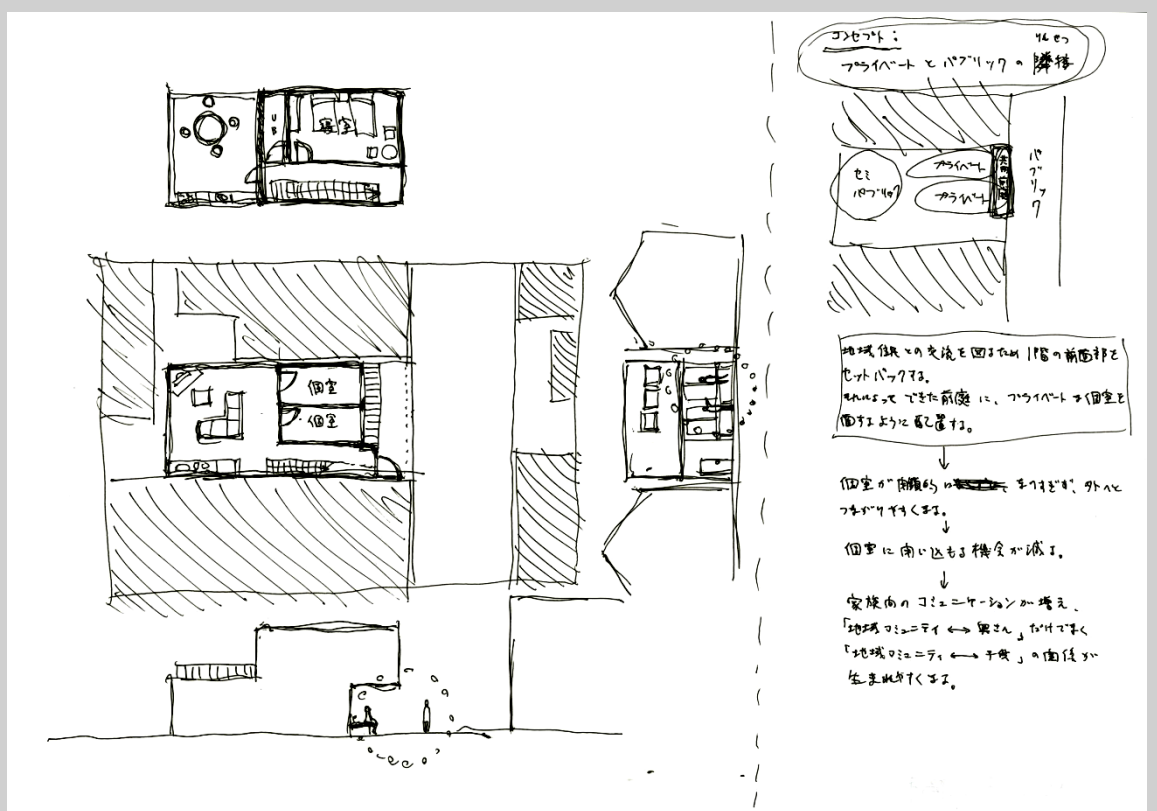 UB
寝室
個室
個室
コンセプト:
りんせつ
プライベートとパブリックの隣接
セミ
パブリック
プライベート
プライベート
パブリック
地域住民との交流を図るため1階の前面部を
セットバックする。
それによってできた前庭に、プライベートな個室を
面するように配置する。
↓
個室が なりすぎず、外へと
つながりやすくなる。
↓
個室に閉じ込もる機会が減る。
↓
家族間のコミュニケーションが増え、
「地域コミュニティ ↔ 奥さん」だけでなく
「地域コミュニティ ↔ 子供」の関係が
生まれやすくなる。